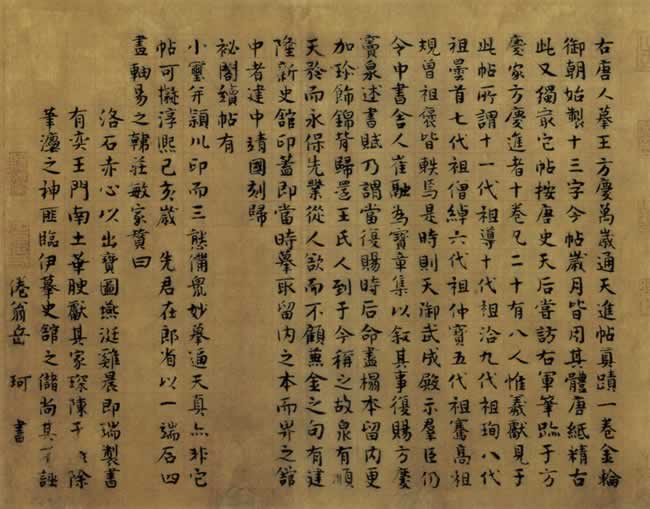 右唐人摹王方慶萬歲通天進帖真蹟一卷金輪
御朝始製十三字今帖歲月皆用其體唐紙精古
此又獨最它帖按唐史天后嘗訪右軍筆蹟于方
慶家方慶進者十卷凡二十有八人惟羲獻見于
此帖所謂十一代祖導十代祖洽九代祖珣八代
祖曇首七代祖僧綽六代祖仲寶五代祖騫高祖
規曾祖褒皆軼焉是時則天御武成殿示羣臣仍
令中書舍人崔融為寶章集以叙其事復賜方慶
竇泉述書賦乃謂當復賜時后命盡搨本留內更
加珍飾錦背歸還王氏人到于今稱之故泉有順
天矜而永保先業從人欲而不顧兼金之句有建
隆新史館印蓋即當時摹取留內之本而畀之館
中者建中靖國刻歸
祕閣續帖有
小璽并潁川印而三態備眾妙摹通天真亦非它
帖可擬淳熙己亥歲 先君在郎省以一端石四
盡軸易之韓莊敏家贊曰
洛石赤心以出寶圖燕涎雞晨即瑞製書
有奕王門南土華腴獻其家琛陳于 除
筆瀍之神匪臨伊摹史館之儲尚其 誣
倦翁岳 珂 書